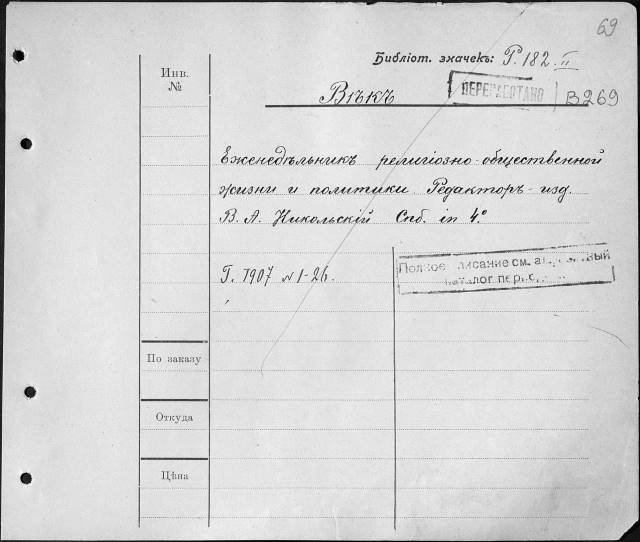 69
Библіот. значекъ: Р. 182 II
Инв.
№
ПЕРЕРАБОТАНО
Вѣкъ
В269
Еженедѣльникъ религіозно-общественной
жизни и политики Редакторъ-изд.
В. А. Никольскій Спб. in 4º
Полное описание см. алфавитный
каталог
Г. 1907 № 1-26.
По заказу
Откуда
Цѣна